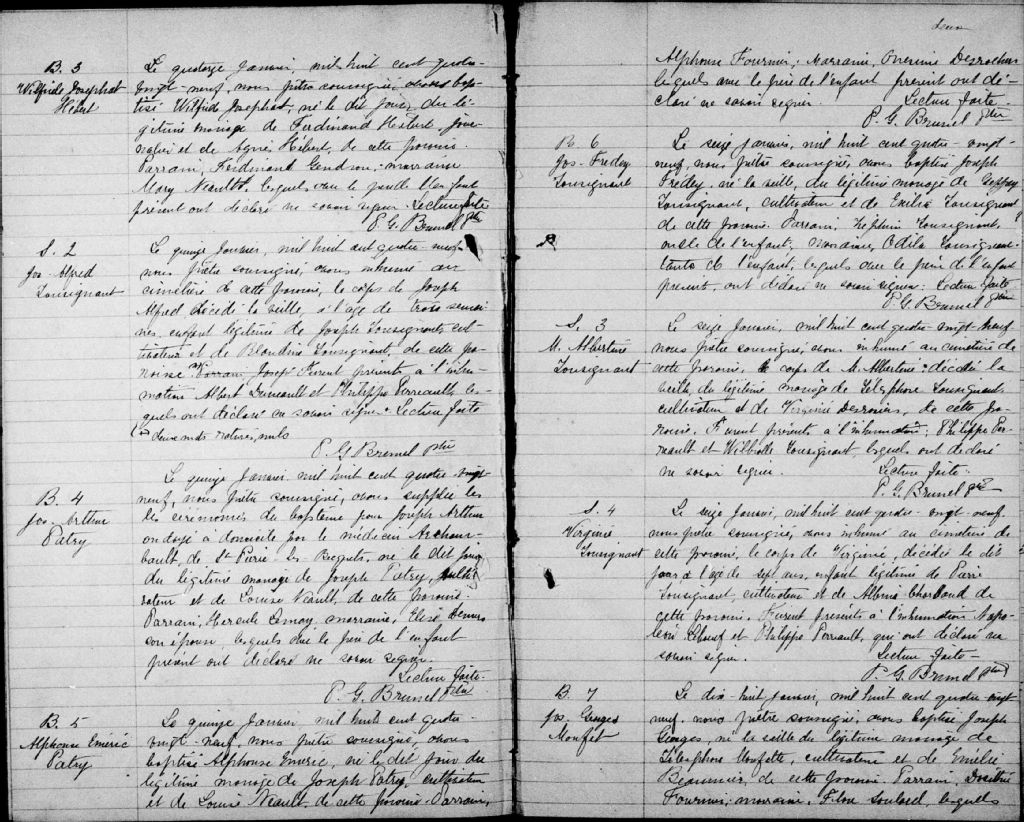 B. 3
Wilfride Josephat
Hébert
Le quatorze Janvier, mil huit cent quatre-
vingt-neuf, nous prêtre soussigné, avons bap-
tisé Wilfride Josephat, né le dit jour, du lé-
gitime mariage de Ferdinand Hébert jour-
nalier et de Agnès Hébert, de cette paroisse.
Parrain, Ferdinand Gendron, marraine
Mary Neault, lesquels avec le père de l'enfant
présent ont déclaré ne savoir signer. Lecture faite
P. G. Brunel ptre
S. 2
Jos. Alfred
Tousignant
Le quinze Janvier, mil huit cent quatre neuf
nous prêtre soussigné, avons inhumé au
cimetière de cette paroisse, le corps de Joseph
Alfred décédé la veille, à l'age de trois semai-
nes, enfant légitime de Joseph Tousignant, cul-
tivateur et de Blandine Tousignant, de cette pa-
roisse. Furent présents à l'inhu-
mation Albert et Philippe Perreault, les-
quels ont déclaré ne savoir signer. Lecture faite
deux mots raturés, nuls
P. G. Brunel ptre
B. 4
Jos. Arthur
Patry
Le quinze Janvier, mil huit cent quatre vingt
neuf, nous prêtre soussigné, avons suppléé les
les cérémonies du baptême pour Joseph Arthur
ondoyé à domicile par le médecin Archam-
bault, de St Pierre Les Becquets, né le dit jour
du légitime mariage de Joseph Patry, culti-
vateur et de Louise Neault, de cette paroisse.
Parrain, Hercule Lemay, marraine, Elise
son épouse, lesquels avec le père de l'enfant
présent ont déclaré ne savoir signer.
Lecture faite-
P. G. Brunel ptre
B. 5
Alphonse Eméric
Patry
Le quinze Janvier mil huit cent quatre-
vingt-neuf, nous prêtre soussigné, avons
baptisé Alphonse Emeric, né le dit jour du
légitime mariage de Joseph Patry, cultivateur
et de Louise Neault, de cette paroisse. Parrain,
deux
Alphonse Fournier, Marraine, Onesime Desrochers
lesquels avec le père de l'enfant présent ont dé-
claré ne savoir signer. Lecture faite-
P. G. Brunel ptre
B. 6
Jos- Fredey
Tousignant
Le seize Janvier, mil huit cent quatre-vingt-
neuf, nous prêtre soussigné, avons baptisé Joseph
Fredey, né la veille, du légitime mariage de
Tousignant, cultivateur et de Emilie Tousignant
de cette paroisse. Parrain, Tousignant,
oncle de l'enfant, Marraine, Odila Tousignant
tante de l'enfant, lesquels avec le père de l'enfant
présent, ont déclaré ne savoir signer. Lecture faite
P. G. Brunel ptre
S. 3
M. Albertine
Tousignant
Le seize Janvier, mil huit cent quatre vingt-neuf
nous prêtre soussigné, avons inhumé au cimetière de
cette paroisse, le corps de M. Albertine décédée la
veille, du légitime mariage de Telesphore Tousignant
cultivateur et de Virginie Desrosiers, de cette pa-
roisse. Furent présents à l'inhumation; Philippe Per-
reault et Tousignant lesquels ont déclaré
ne savoir signer. Lecture faite-
P. G. Brunel ptre
S. 4
Virginie
Tousignant
Le seize Janvier, mil huit cent quatre-vingt-neuf.
nous prêtre soussigné, avons inhumé au cimetière de
cette paroisse, le corps de Virginie, décédée le dit
jour à l'age de sept ans, enfant légitime de Pierre
Tousignant, cultivateur et de Albina Charland de
cette paroisse. Furent présents à l'inhumation Napo-
léon et Philippe Perrault, qui ont déclaré ne
savoir signer. Lecture faite-
P. G. Brunel ptre
B. 7
Jos. Georges
Monfet
Le dix-huit janvier, mil huit cent quatre vingt
neuf, nous prêtre soussigné, avons baptisé Joseph
Georges né la veille du légitime mariage de
Télesphore Monfette, cultivateur et de Emélie
Beaumier, de cette paroisse. Parrain,
Fournier; marraine, lesquels